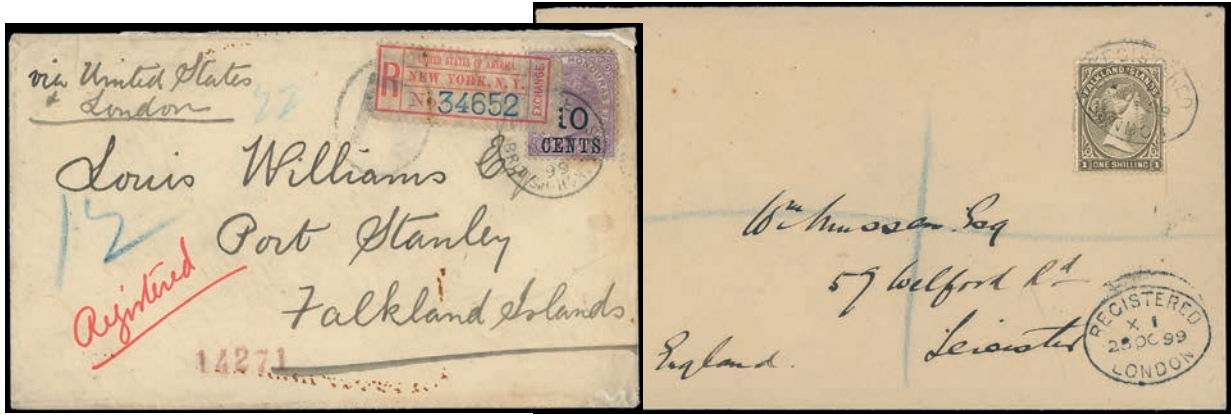 via United States
& London
R
UNITED STATES OF AMERICA
NEW YORK, N. Y.
No 34652
EXCHANGE
HONDURAS
10
CENTS
BRITISH
99
Louis Williams
Port Stanley
Falkland Islands.
12
Registered
14271
FALKLAND ISLANDS
1 ONE SHILLING 1
REGISTERED
Wm Musson Esq
59 Welford Rd
Leicester
England.
REGISTERED
X 1
25 OC 99
LONDON